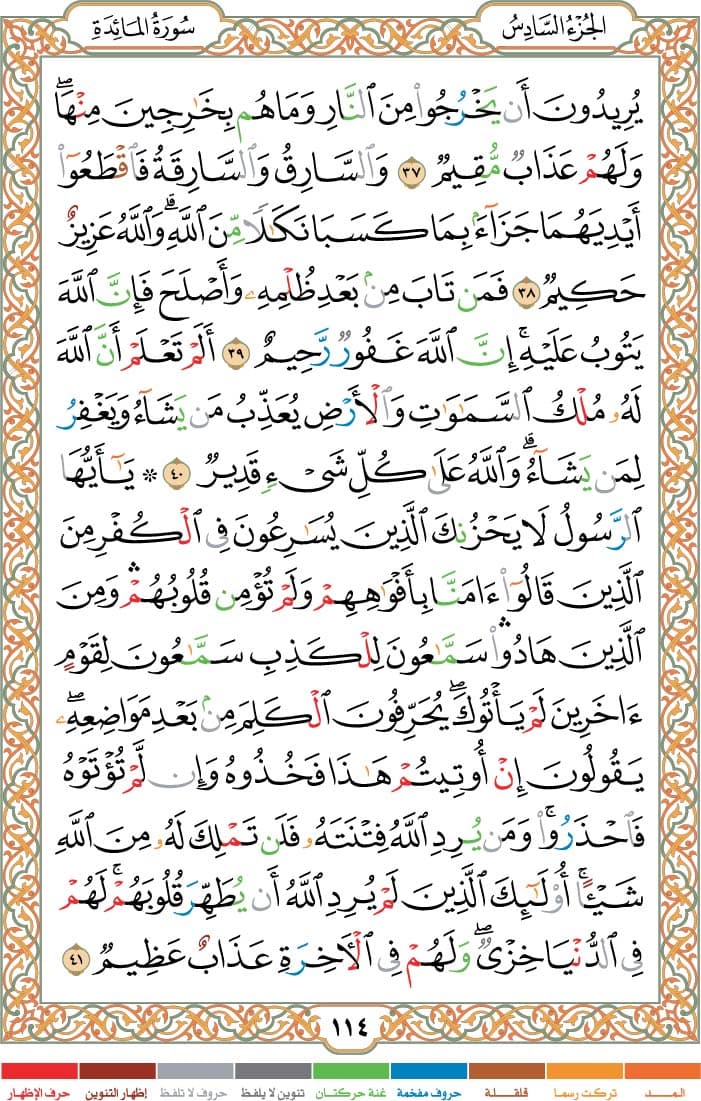 الجُزْءُ السَّادِسُ
سُورَةُ المَائِدَةِ
يُرِيدُونَ أَن يَخْرُجُوا۟ مِنَ ٱلنَّارِ وَمَا هُم بِخَٰرِجِينَ مِنْهَاۖ
وَلَهُمْ عَذَابٌ مُّقِيمٌ ٣٧ وَٱلسَّارِقُ وَٱلسَّارِقَةُ فَٱقْطَعُوٓا۟
أَيْدِيَهُمَا جَزَآءًۢ بِمَا كَسَبَا نَكَٰلًا مِّنَ ٱللَّهِۗ وَٱللَّهُ عَزِيزٌ
حَكِيمٌ ٣٨ فَمَن تَابَ مِنۢ بَعْدِ ظُلْمِهِۦ وَأَصْلَحَ فَإِنَّ ٱللَّهَ
يَتُوبُ عَلَيْهِۚ إِنَّ ٱللَّهَ غَفُورٌ رَّحِيمٌ ٣٩ أَلَمْ تَعْلَمْ أَنَّ ٱللَّهَ
لَهُۥ مُلْكُ ٱلسَّمَٰوَٰتِ وَٱلْأَرْضِ يُعَذِّبُ مَن يَشَآءُ وَيَغْفِرُ
لِمَن يَشَآءُۗ وَٱللَّهُ عَلَىٰ كُلِّ شَىْءٍ قَدِيرٌ ٤٠ * يَٰٓأَيُّهَا
ٱلرَّسُولُ لَا يَحْزُنكَ ٱلَّذِينَ يُسَٰرِعُونَ فِى ٱلْكُفْرِ مِنَ
ٱلَّذِينَ قَالُوٓا۟ ءَامَنَّا بِأَفْوَٰهِهِمْ وَلَمْ تُؤْمِن قُلُوبُهُمْۛ وَمِنَ
ٱلَّذِينَ هَادُوا۟ۛ سَمَّٰعُونَ لِلْكَذِبِ سَمَّٰعُونَ لِقَوْمٍ
ءَاخَرِينَ لَمْ يَأْتُوكَۖ يُحَرِّفُونَ ٱلْكَلِمَ مِنۢ بَعْدِ مَوَاضِعِهِۦۖ
يَقُولُونَ إِنْ أُوتِيتُمْ هَٰذَا فَخُذُوهُ وَإِن لَّمْ تُؤْتَوْهُ
فَٱحْذَرُوا۟ۚ وَمَن يُرِدِ ٱللَّهُ فِتْنَتَهُۥ فَلَن تَمْلِكَ لَهُۥ مِنَ ٱللَّهِ
شَيْـًٔاۚ أُو۟لَٰٓئِكَ ٱلَّذِينَ لَمْ يُرِدِ ٱللَّهُ أَن يُطَهِّرَ قُلُوبَهُمْۚ لَهُمْ
فِى ٱلدُّنْيَا خِزْىٌۖ وَلَهُمْ فِى ٱلْءَاخِرَةِ عَذَابٌ عَظِيمٌ ٤١
١١٤
المـــد تركت رسما قلقـــلة حروف مفخمة غنة حركتان تنوين لا يلفظ حروف لا تلفظ إظهار التنوين حرف الإظهار